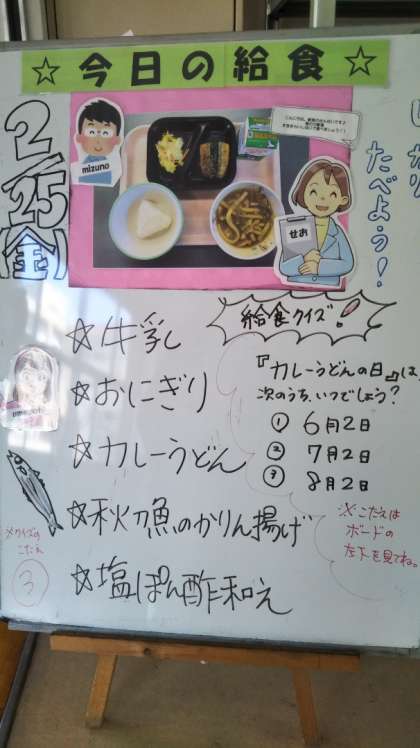 ☆今日の給食☆
2/25(金)
mizuno
せお
たべよう!
☆牛乳
☆おにぎり
☆カレーうどん
☆秋刀魚のかりん揚げ
☆塩ぽん酢和え
給食クイズ!
『カレーうどんの日』は、
次のうち、いつでしょう?
① 6月2日
② 7月2日
③ 8月2日
※こたえは
ボードの
左下を見てね。
※クイズの
こたえ
③